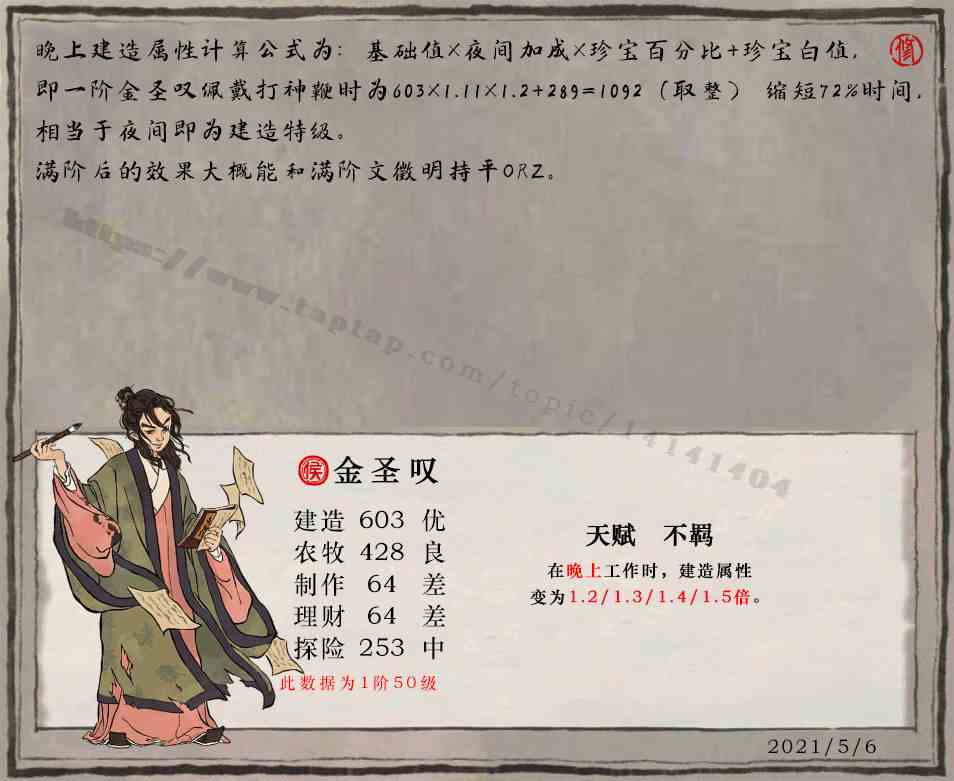 晚上建造属性计算公式为: 基础值×夜间加成×珍宝百分比+珍宝白值,
修
即一阶金圣叹佩戴打神鞭时为603×1.11×1.2+289=1092（取整） 缩短72%时间,
相当于夜间即为建造特级。
满阶后的效果大概能和满阶文徵明持平ORZ。
https://www.taptap.com/topic/14141404
侯 金圣叹
建造 603 优
农牧 428 良
制作 64 差
理财 64 差
探险 253 中
此数据为1阶50级
天赋 不羁
在晚上工作时，建造属性
变为1.2/1.3/1.4/1.5倍。
2021/5/6